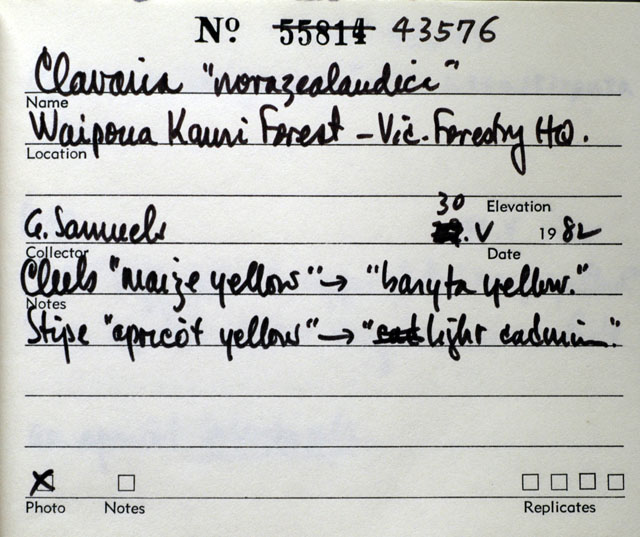 Nº 55814 43576
Clavaria "novazealandica"
Name
Waipoua Kauri Forest - Vic. Forestry HQ.
Location
30 Elevation
G. Samuels .V 1982
Collector Date
Clubs "maize yellow" → "baryta yellow."
Notes
Stipe "apricot yellow" → " light cadmium."
Photo Notes Replicates